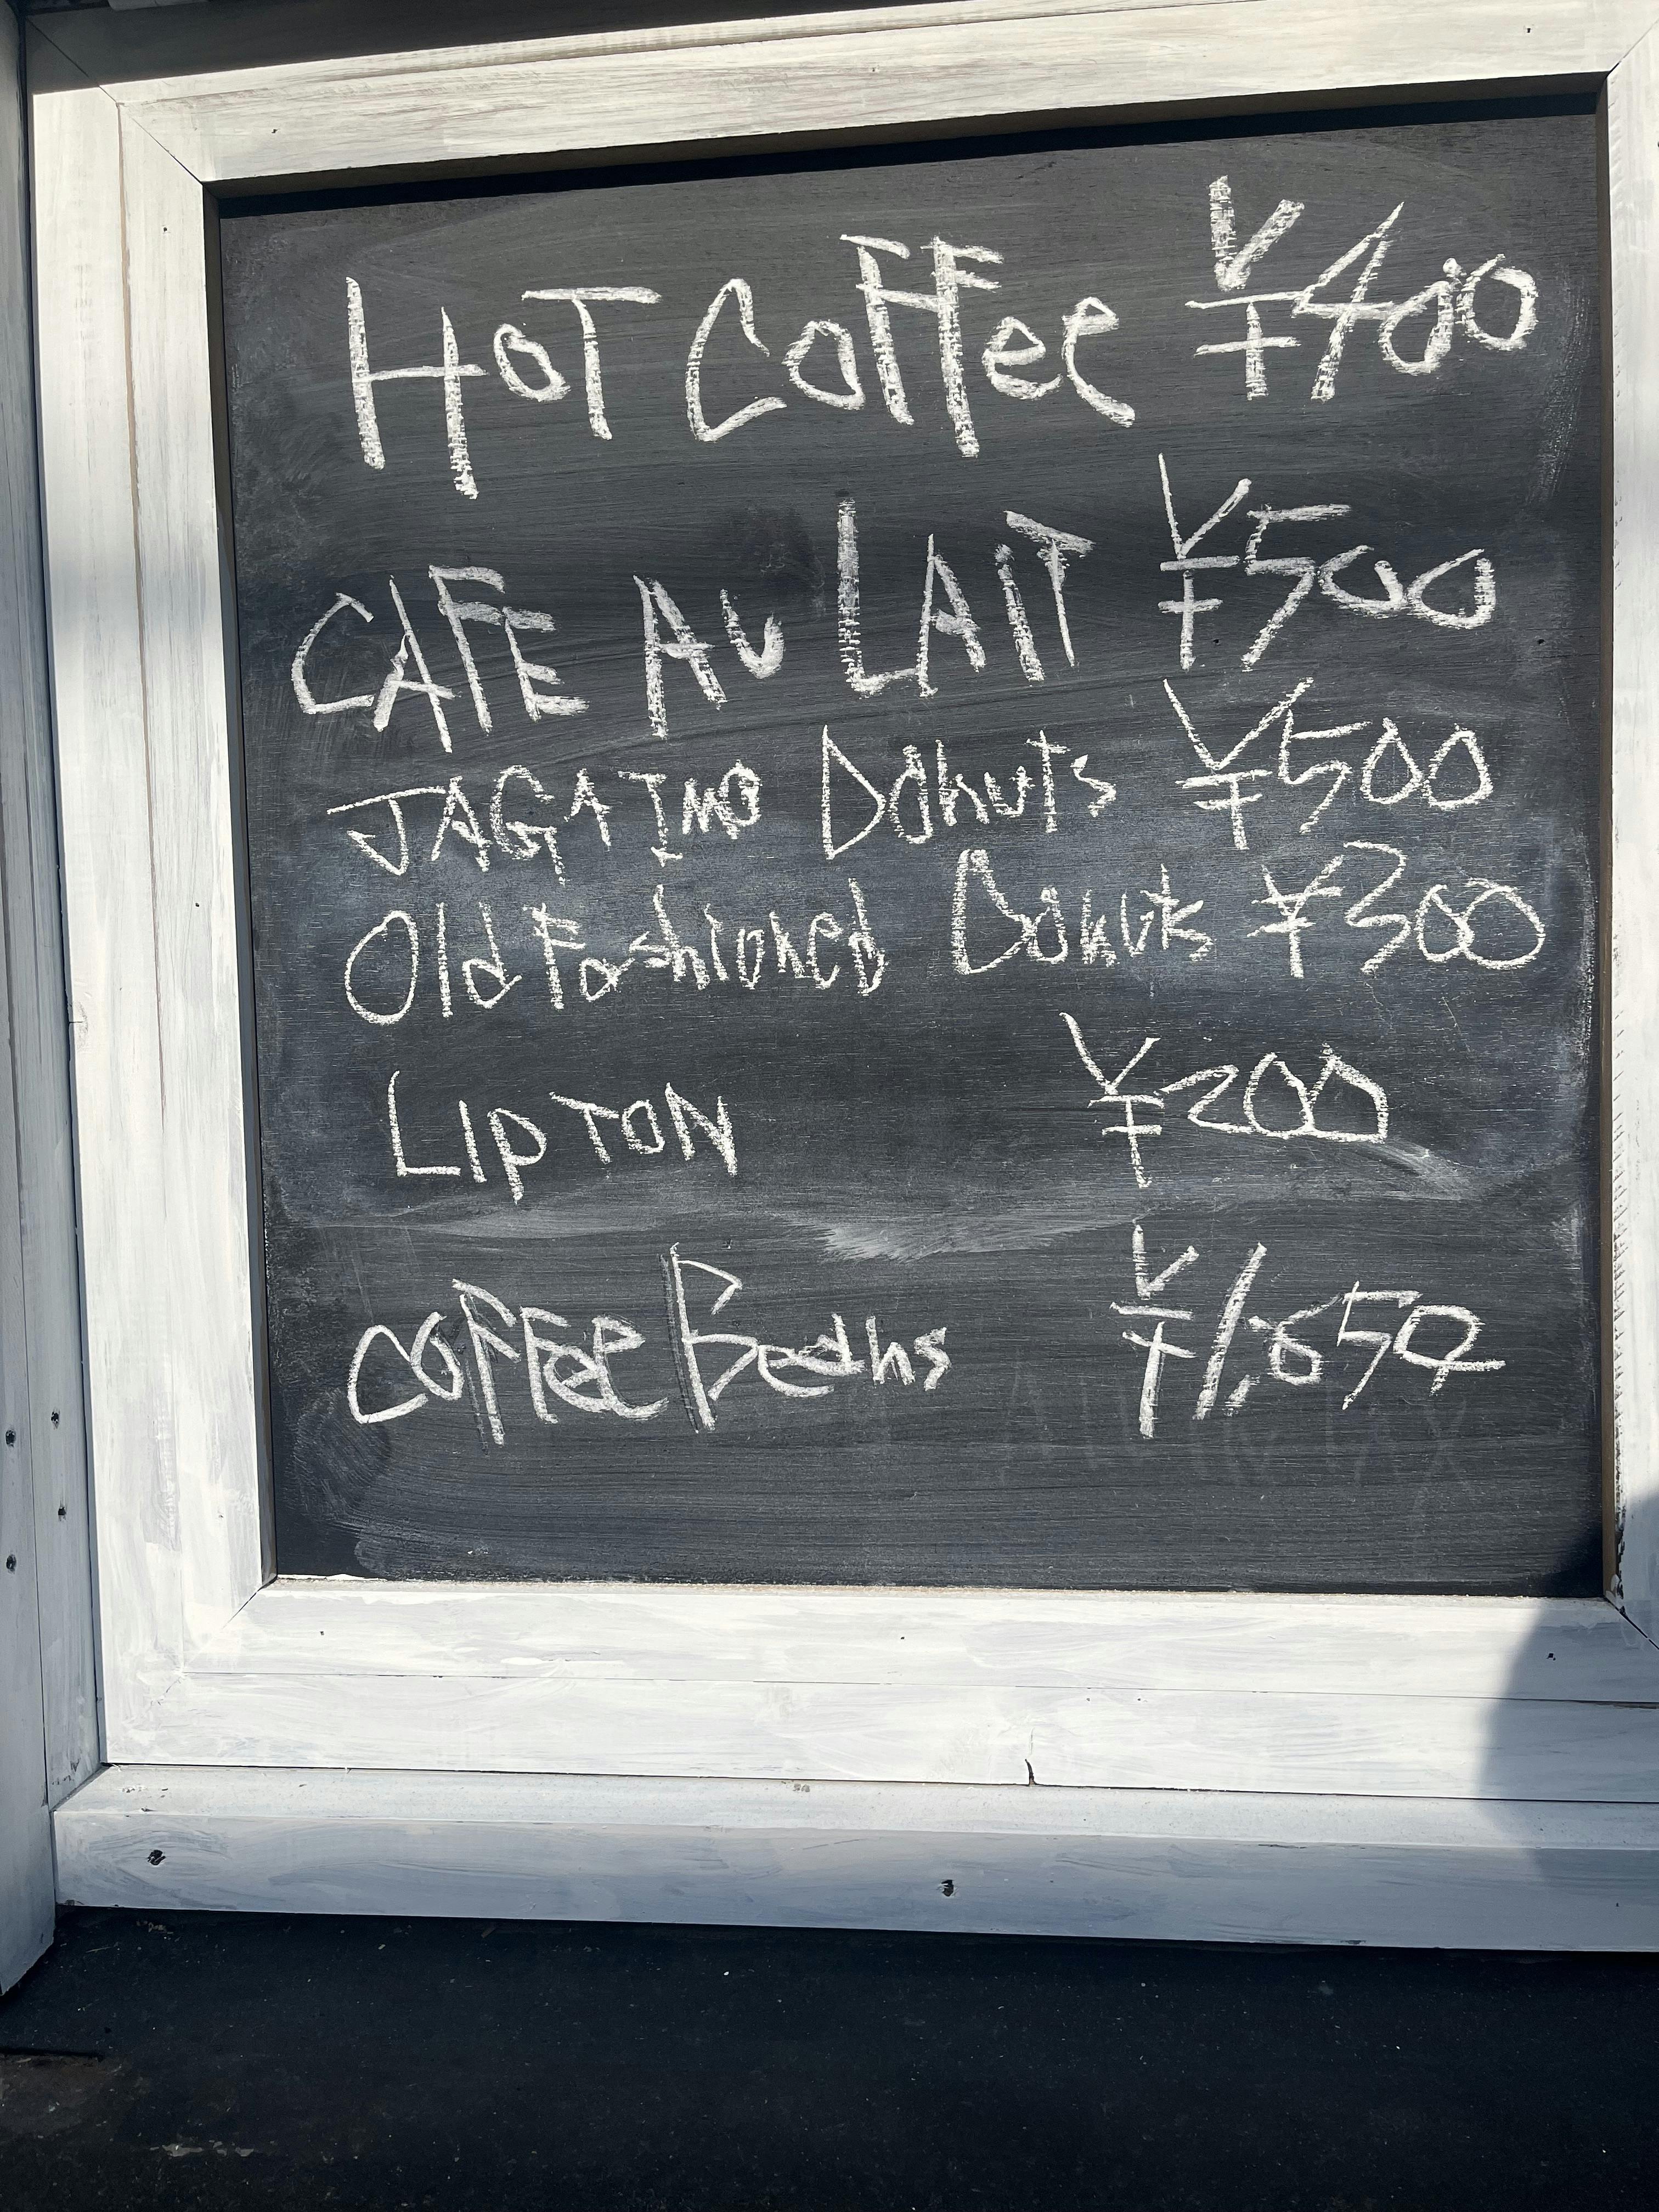 HoT CoFFee ¥400
CAFE Au LAiT ¥500
JAGA Imo Donuts ¥500
Old Fashioned Donuts ¥300
LIpTON ¥200
coFFee Beans ¥1,650